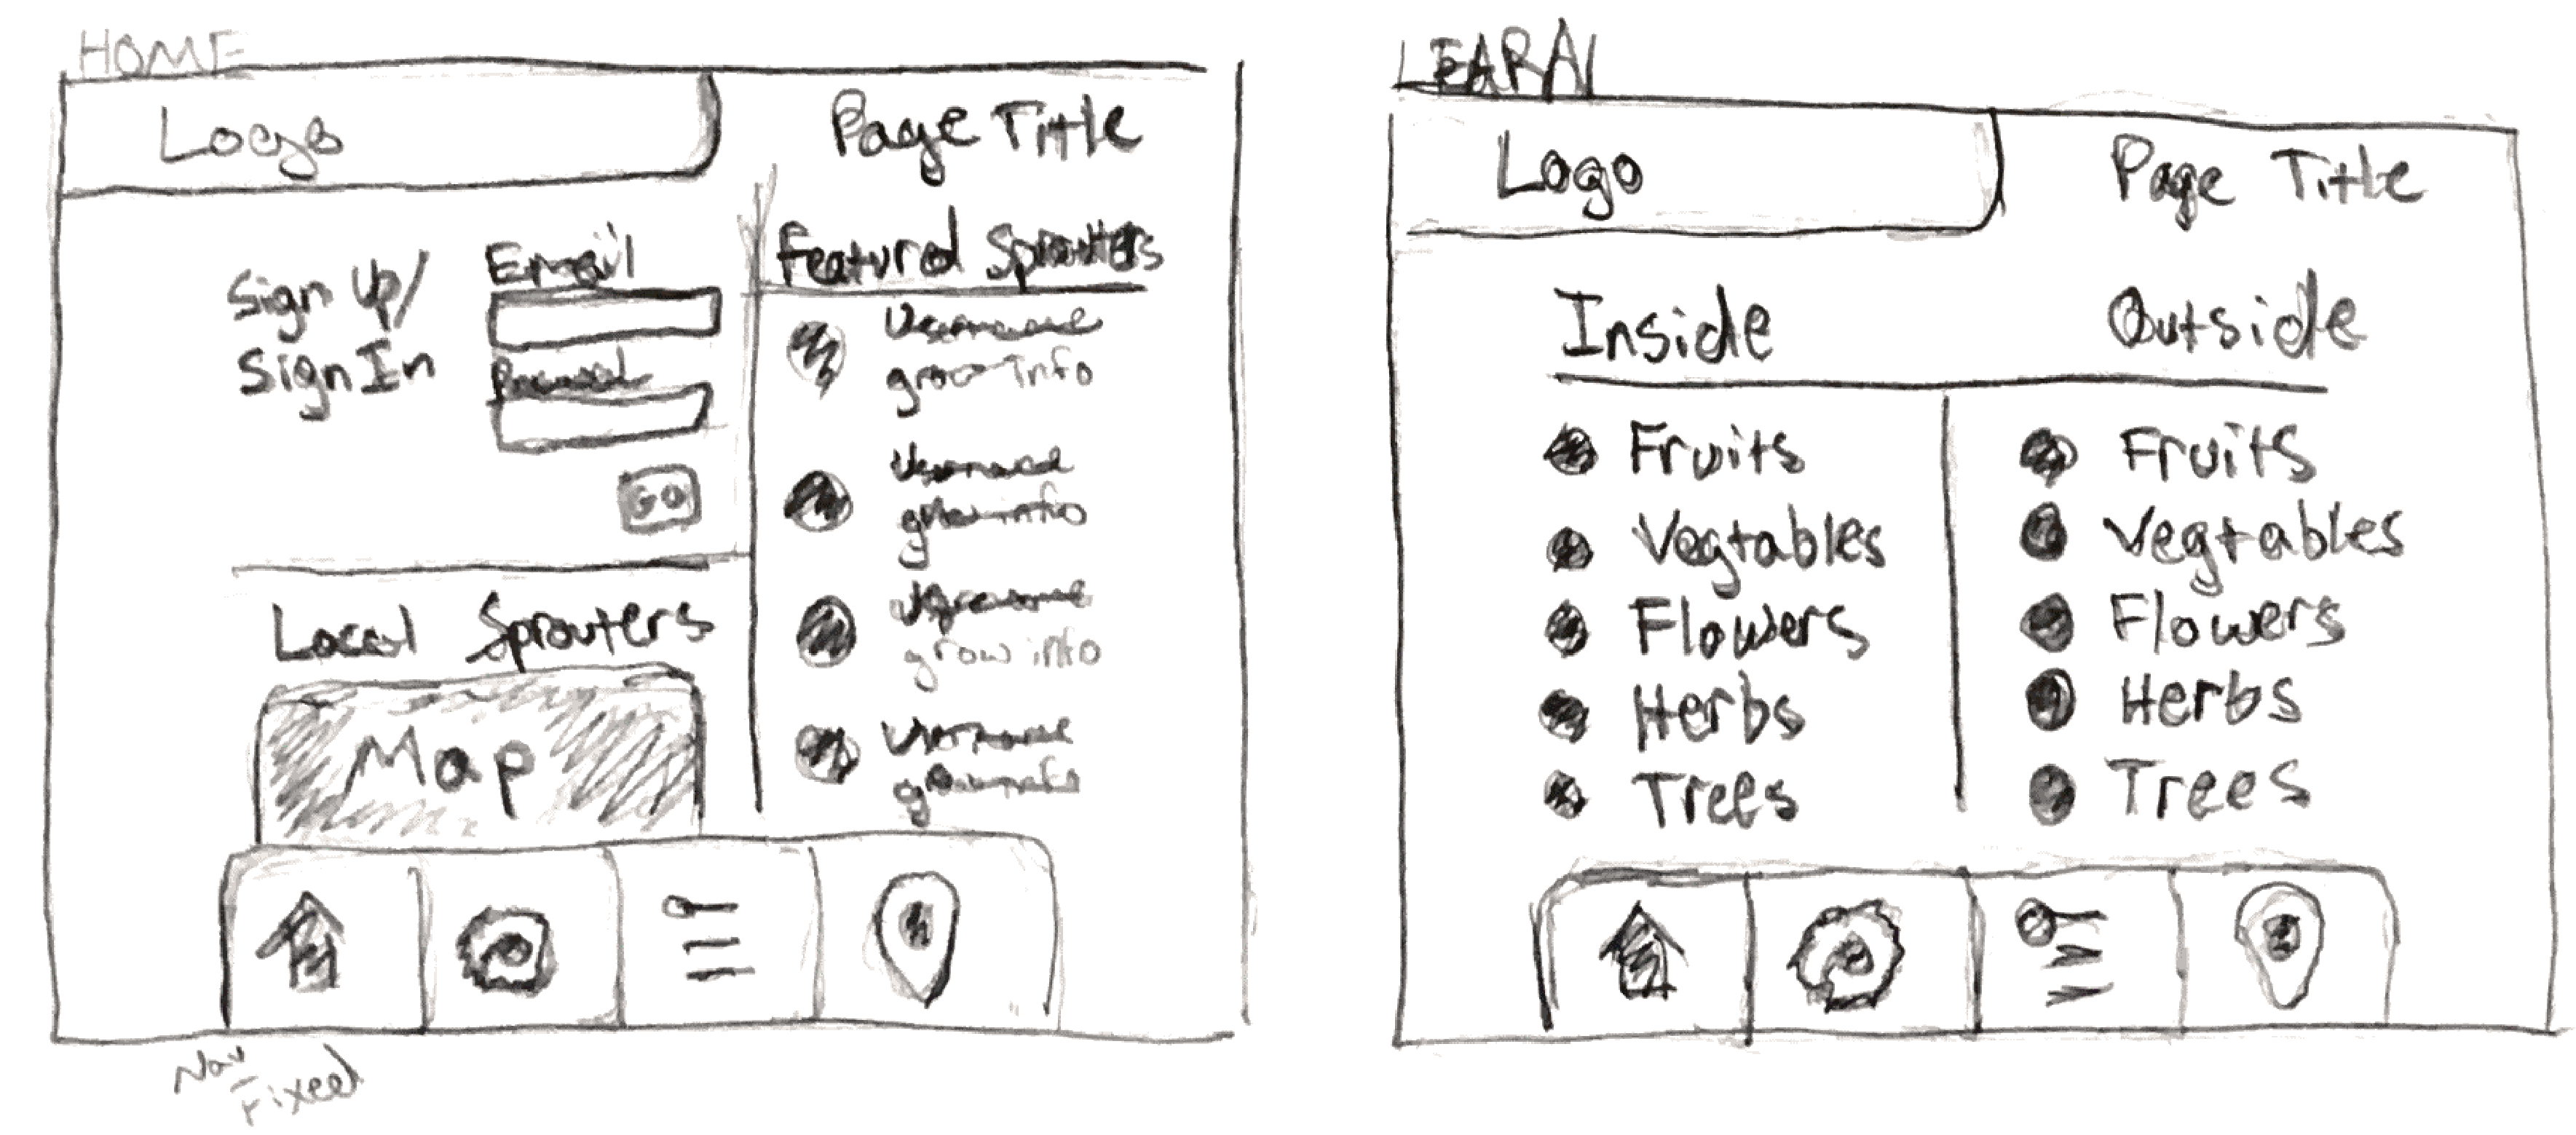 HOME
Logo
Page Title
Sign Up/
Sign In
Email
GO
Featurd Sprouters
Username
grow info
Username
grow info
Username
grow info
Username
grow info
Local Sprouters
Map
Nav
Fixed
LEARN
Logo
Page Title
Inside
Outside
Fruits
Vegtables
Flowers
Herbs
Trees
Fruits
Vegtables
Flowers
Herbs
Trees